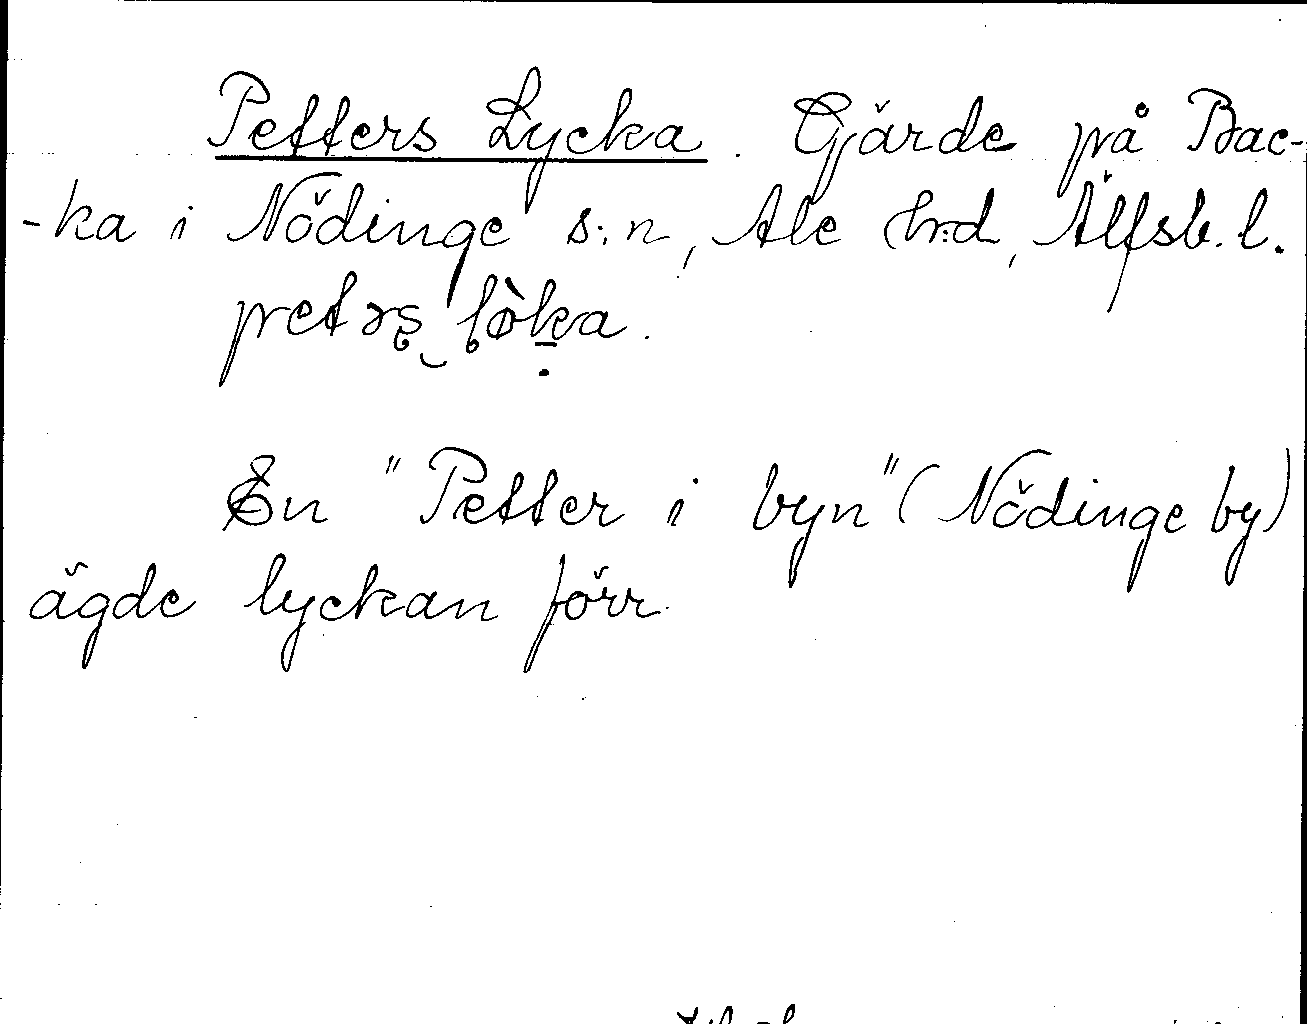 Petters Lycka. Gärde på Bac-
-ka i Nödinge s:n, Ale h:d, Älfsb. l.
En "Petter i byn" (Nödinge by)
ägde lyckan förr.